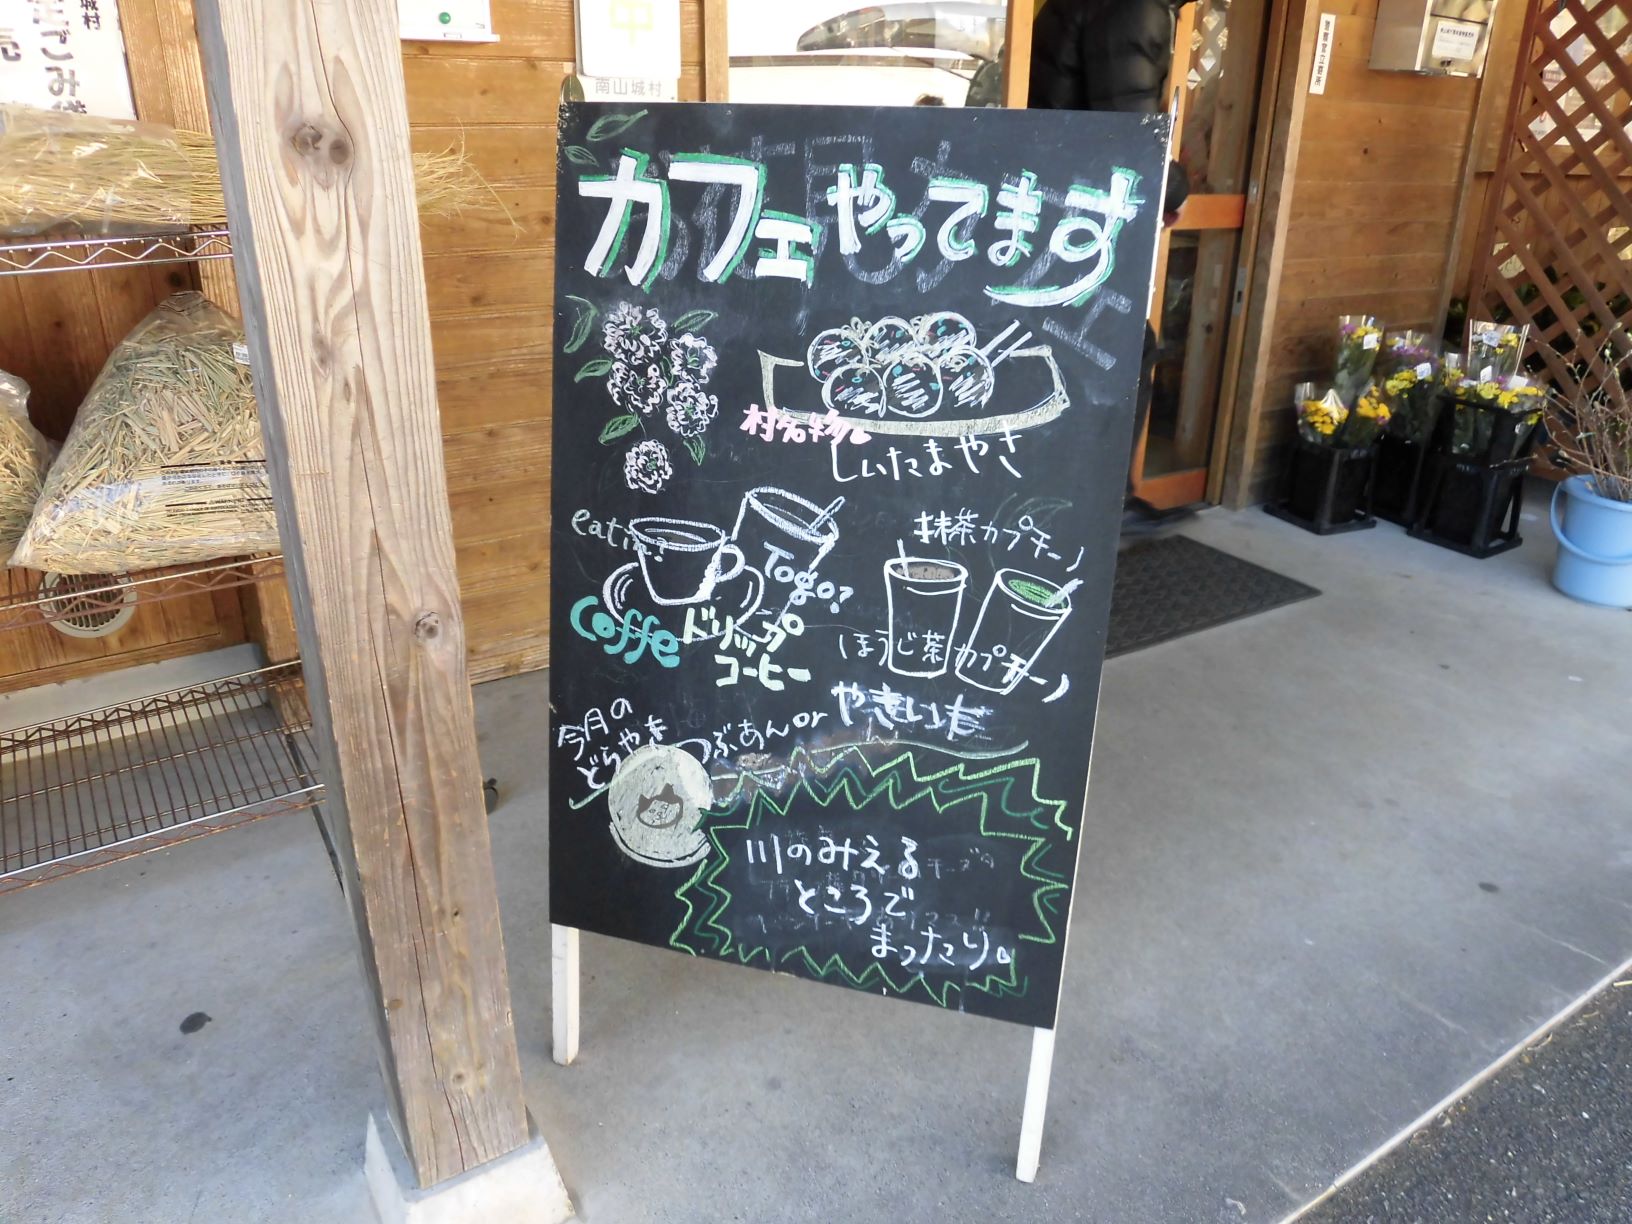 城村
生ごみ堆
売
南山城村
カフェやってます
村名物
しいたまやき
eat in?
To go?
Coffe
ドリップ
コーヒー
抹茶カプチーノ
ほうじ茶カプチーノ
今月の
どらやき
つぶあん or やきいも
川のみえる
ところで
まったり。